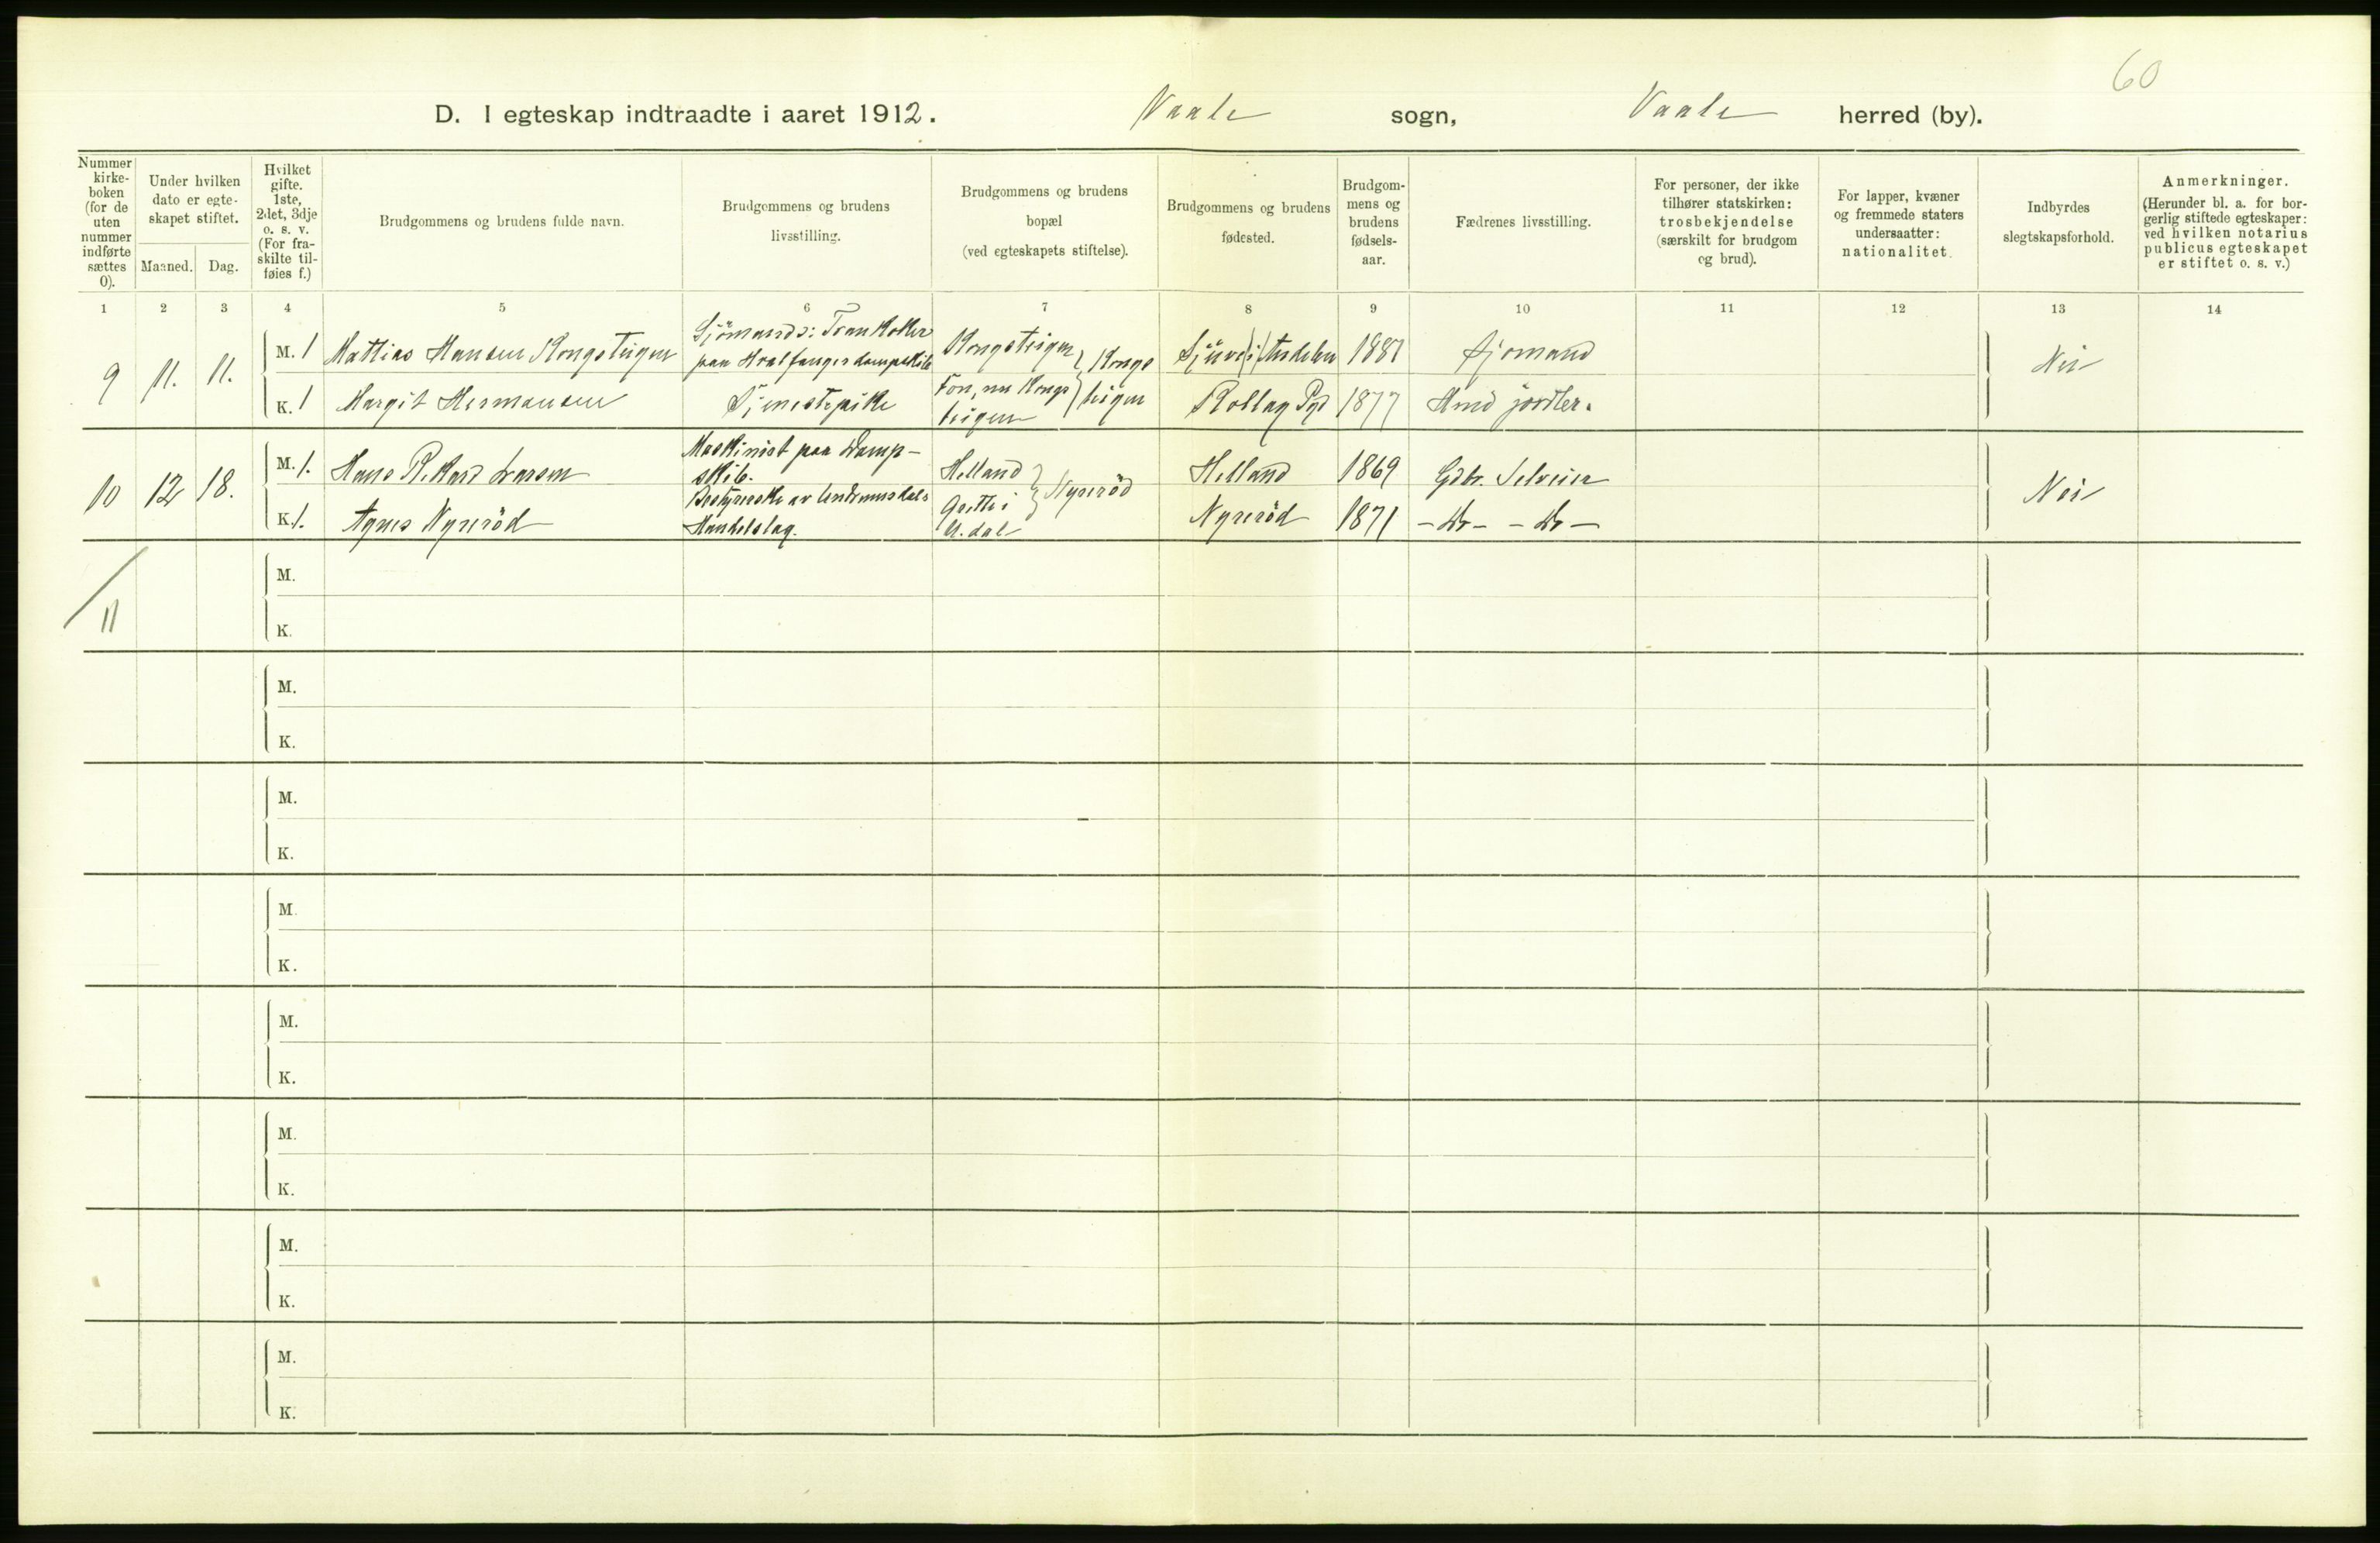 60
D. I egteskap indtraadte i aaret 1912. Vaale sogn, Vaale herred (by).
Nummer kirke-boken (for de uten nummer indførte sættes 0).
Under hvilken dato er egte-skapet stiftet.
Maaned. Dag.
Hvilket gifte. 1ste, 2det, 3dje o. s. v. (For fra-skilte til-føies f.)
Brudgommens og brudens fulde navn.
Brudgommens og brudens livsstilling.
Brudgommens og brudens bopæl (ved egteskapets stiftelse).
Brudgommens og brudens fødested.
Brudgom-mens og brudens fødsels-aar.
Fædrenes livsstilling.
For personer, der ikke tilhører statskirken: trosbekjendelse (særskilt for brudgom og brud).
For lapper, kvæner og fremmede staters undersaatter: nationalitet.
Indbyrdes slegtskapsforhold.
Anmerkninger. (Herunder bl. a. for bor-gerlig stiftede egteskaper: ved hvilken notarius publicus egteskapet er stiftet o. s. v.)
1 2 3 4 5 6 7 8 9 10 11 12 13 14
9 11. 11. M. 1 Mattias Hansen Kongsteigen Sjömands: Trankoker paa Hvalfangerdampskib Kongsteigen Kongsteigen 1881 Sjömand Nei
K. 1 Margit Hermansen Tjenestepike Fon, nu Kongsteigen Rollag Pgd 1877 Hmd
10 12 18. M. 1. Hans Rikard Larsen Maskinist paa Damp-skib. Helland Nyreröd Helland 1869 Gdbr. Selveier Nei
K. 1. Agnes Nyreröd Bestyrerske av Undrumsdals Handelslag. U. dal Nyreröd 1871 - Do - - Do -
11
M.
K.
M.
K.
M.
K.
M.
K.
M.
K.
M.
K.
M.
K.
M.
K.